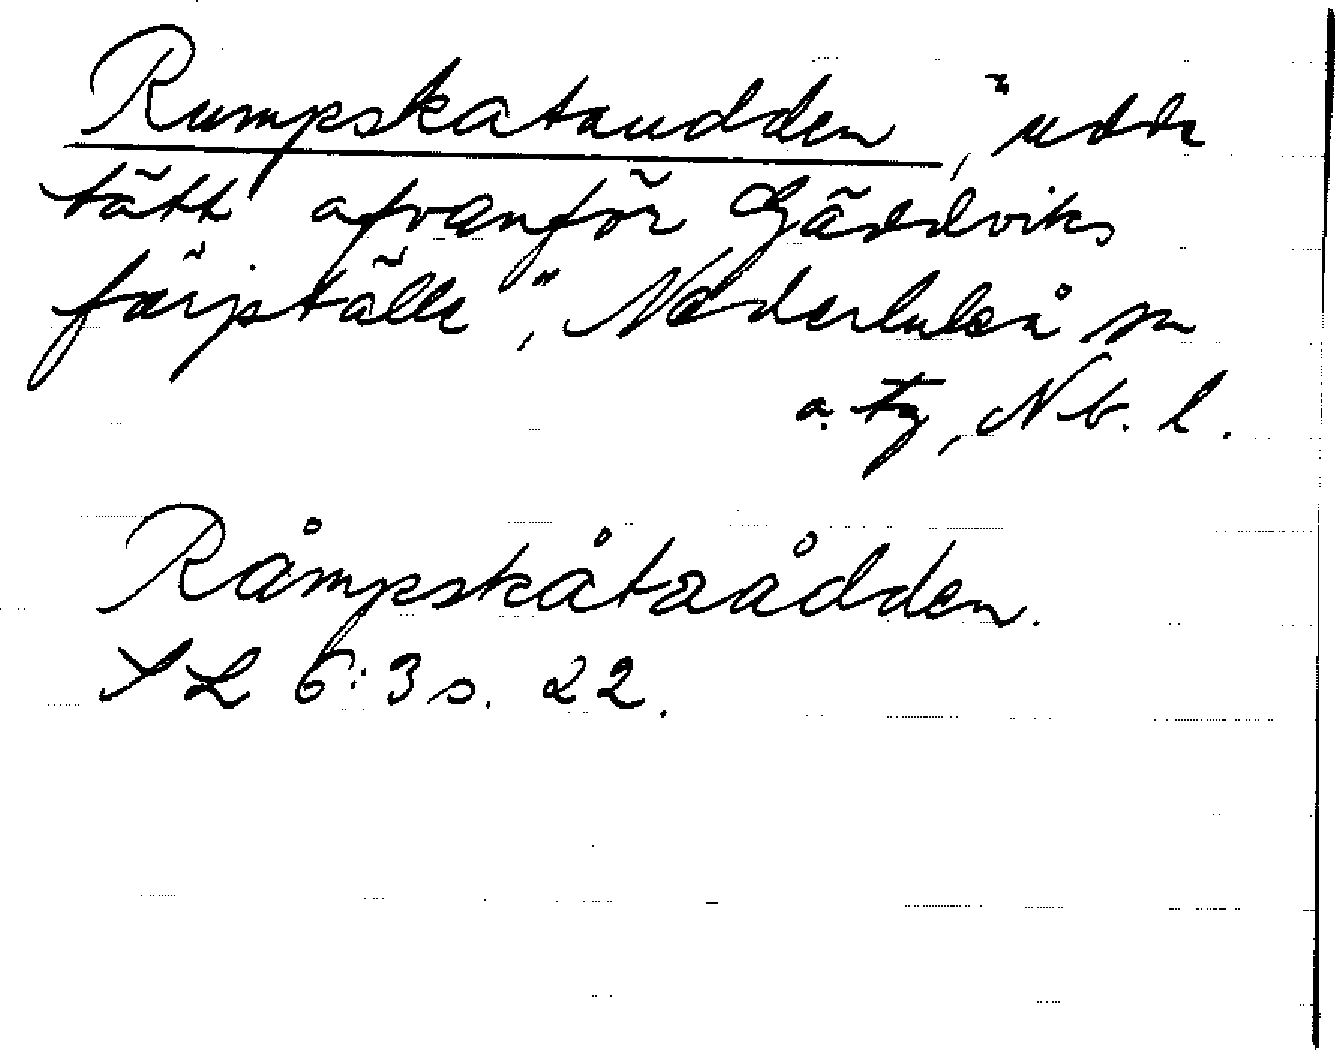 Rumpskataudden, "udde
tätt ofvanför Gäddviks
färjställe", Nederluleå sn
a. fg, Nb. l.
Råmpskåtaådden.
SL 6:3 s. 22.